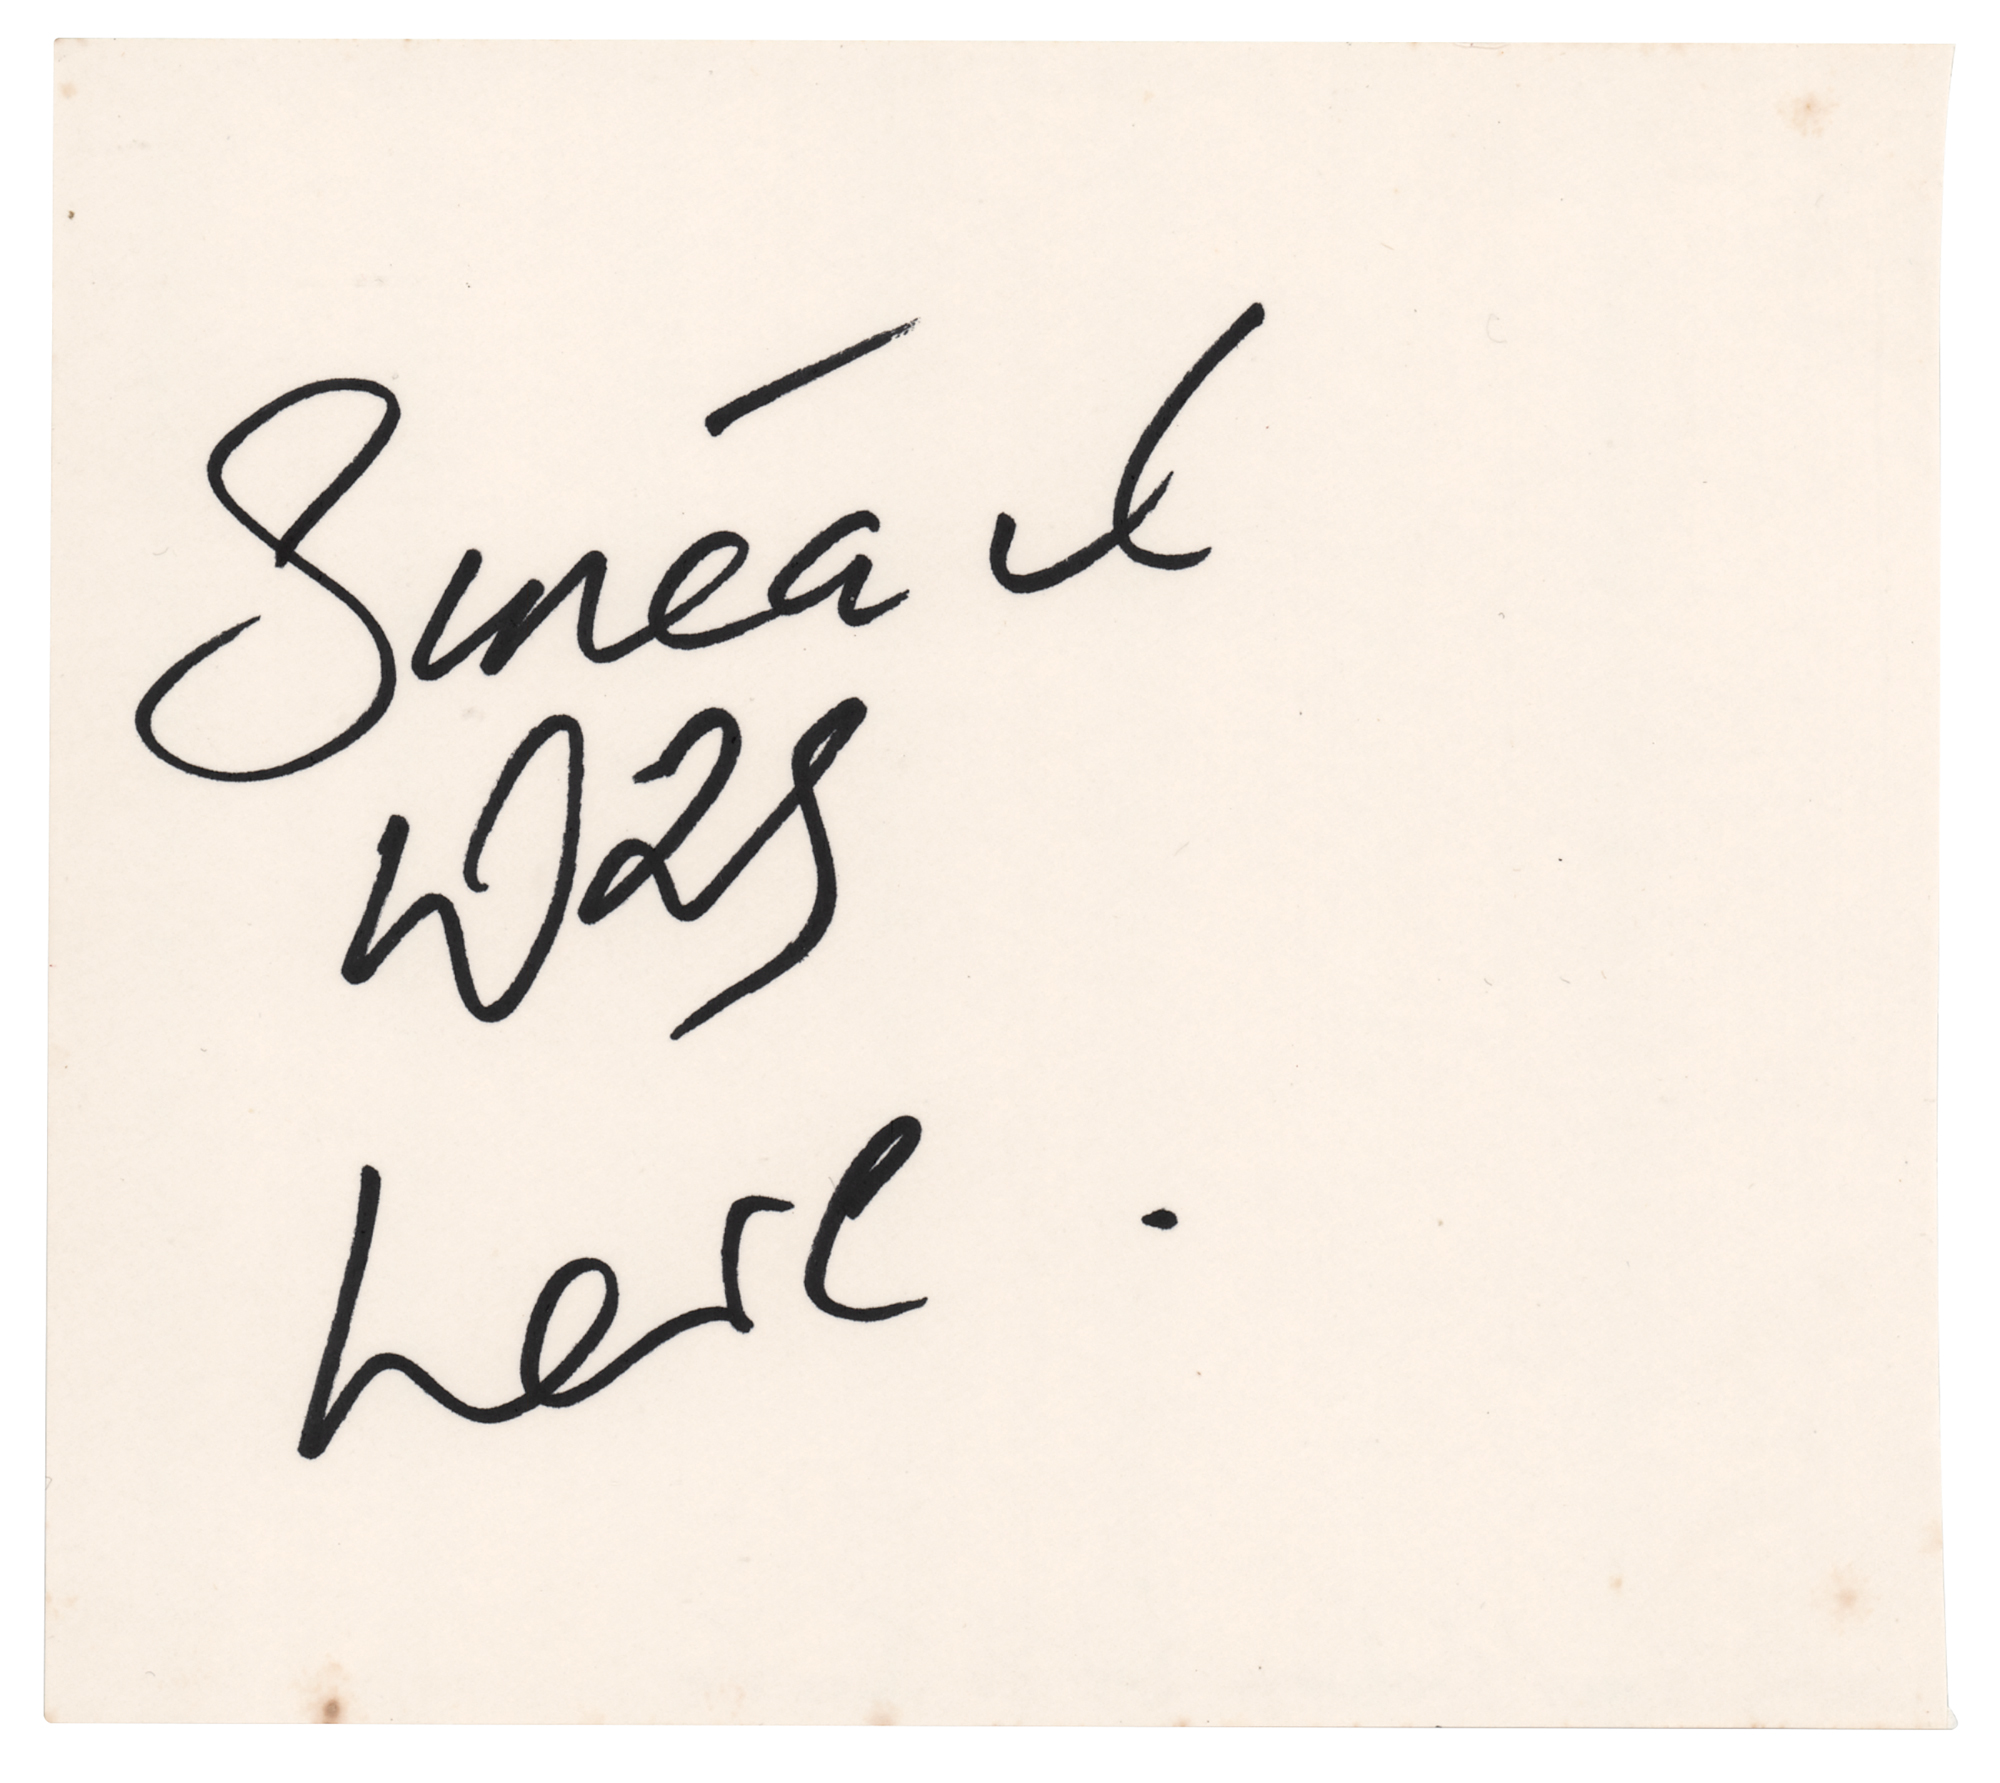 Sinéad
was
here.